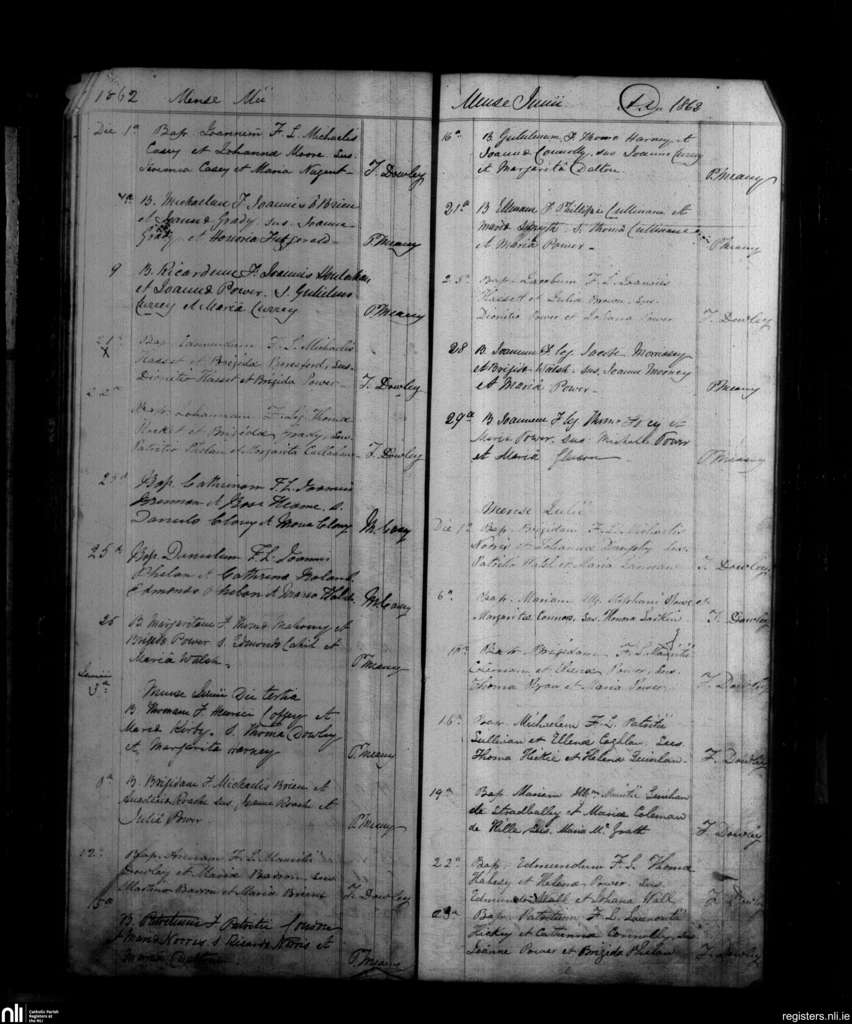 1862 Mense Mii
Die 1a Bap. Joannem F. L. Michaelis
Casey et Johanna Moore Sus.
Jeremia Casey et Maria Nugent T. Dowley
B. Michaelem F Joannis O Brien
et Joanna Grady sus Joanne
Grady et Honoria Fitzgerald P. Meany
9 B. Ricardum F. Joannis
et Joanna Power. S. Gulielmo
Currey et Maria Currey P. Meany
21a Bap. Edmundum F. L. Michaelis
Hasset et Brigida Beresford, Sus.
Dionitio Hasset et Brigida Power T. Dowley
22a
Bap. Johannam F. Lig. Thoma
Hacket et Brigida Grady, Sus.
Patritio Phelan et Margarita Callaghan T. Dowley
Bap Catherinam F. L. Joannis
Brennan et
Daniele Clony et Maria Clony
25a Bap Danielem F. L. Joannis
Phelan et Catherina Boland
Edmondo Phelan et Maria Walsh
25 B. Margaritam F Thoma Mahoney et
Brigida Power S Edmondo Cahil et
Maria Walsh P. Meany
Junii
3a Mense Junii Die tertia
B Thomam F. Henrici Coffey et
Maria Kirby. S. Thoma Dowley
et Margarita Varney P. Meany
8a B. Brigidam F Michaelis Brien et
Anastasia Roach Sus Joanne Roach et
Julia Power P. Meany
12a Bap. Annam F. L. Mauritii
Dowley et Maria Barron, Sus
Martino Barron et Maria Briene T. Dowley
15a
B. F Patritii Condon
et Maria Norris S Ricardo Norris et
Maria Dalton P. Meany
Mense Junii 1862
16a B. Gulielmum F Thoma Harney et
Joanna Connolly, sus Joanne Currey
et Margarita Dalton P. Meany
21a B Ellenam F Philippi Cullinane et
Maria Smyth S. Thoma Cullinane
et Maria Power P. Meany
25a Bap. Jacobum F. L. Joannis
Hasset et Julia Brown, Sus.
Dionitio Power et Johana Power T. Dowley
28 B. Joannem F Lg Jacobi Morrissey
et Brigida Walsh. Sus. Joanne Mooney
et Maria Power P. Meany
29a B Joannem F Lg Thoma et
Maria Power, sus Michaele Power
et Maria P. Meany
Mense Julii
Die 1a Bap. Brigidam F. L. Michaelis
Norris et Johanna Dempsy Sus.
Patritio et Maria T. Dowley
6a Bap. Mariam Stephani Power et
Margarita Connors, Sus. Honora Larkin T. Dowley
Bap Brigidam F. L. Mauritii
Coleman et Elena Power, Sus.
Thoma Ryan et Maria Power T. Dowley
16a Bap. Michaelem F. L. Patritii
Sullivan et Ellena Coghlan Sus.
Thoma Hickie et Helena Quinlan T. Dowley
19a Bap Mariam
de Stradbally et Maria Coleman
de Kille Sus. Maria Mc Grath T. Dowley
22a Bap. Edmundum F. L. Thoma
Hahesy et Helena Power Sus.
Edmundo Wall et Johana Wall T. Dowley
23a Bap. Patritium F. L. Laurentii
Hickey et Catherina Connolly, Sus
Joanne Power et Brigida Phelan T. Dowley
nli Catholic Parish
Registers at
the NLI
registers.nli.ie